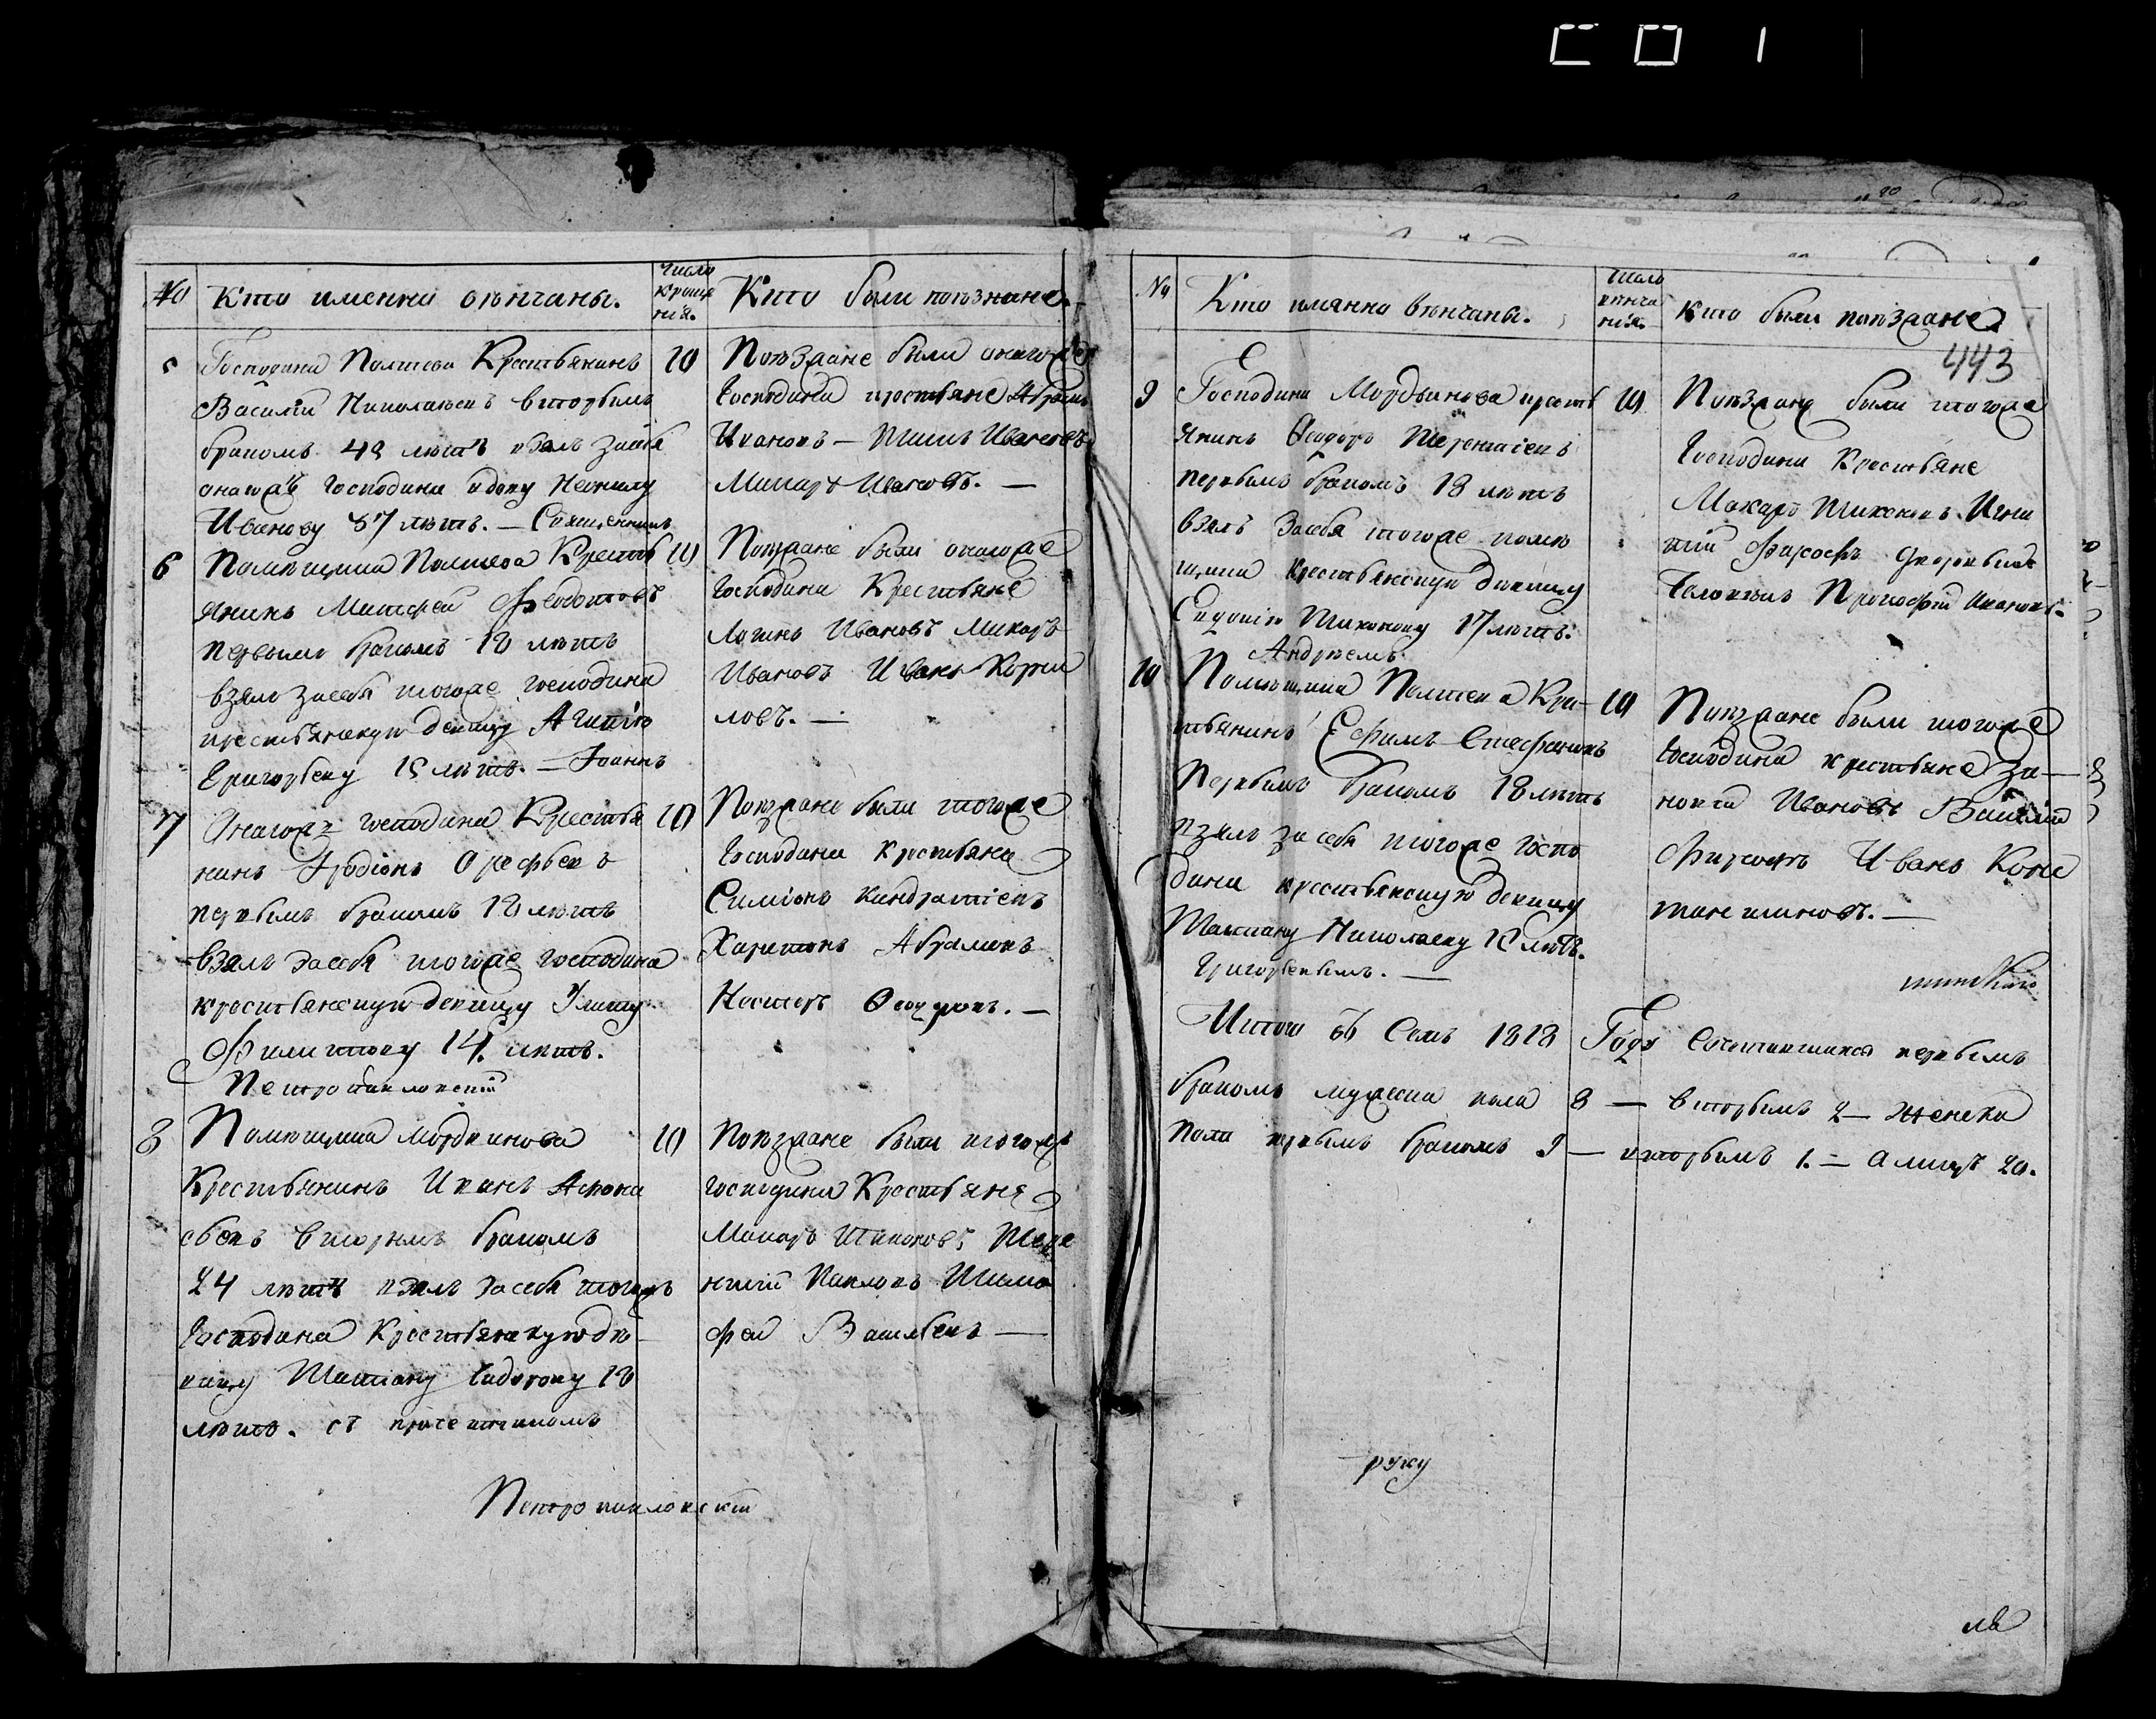 № Кто именно венчаны. Число крещения. Кто были поезжане.
5 Господина Полтева Крестьянинъ 10
Василий Николаевъ вторымъ
бракомъ 49 летъ взялъ засебя
онагожъ Господина вдову Неонилу
Иванову 37 летъ. — Священникъ
Поезжане были онагоже
Господина крестьяне Абрамъ
Ивановъ — Титъ Ивановъ
Макаръ Ивановъ. —
6 Помещика Полтева Кресть 10
янинъ Матфей Федотовъ
первымъ бракомъ 18 летъ
взялъ засебя тогоже господина
крестьянскую девицу Агапию
Григорьеву 15 летъ. — Иоаннъ
Поезжане были онагоже
Господина Крестьяне
Логинъ Ивановъ Макаръ
Ивановъ Иванъ Корни
ловъ. —
7 Онагожъ господина Крестья 10
нинъ Родионъ Орефьевъ
первымъ бракомъ 18 летъ
взялъ засебя тогоже господина
крестьянскую девицу Улиту
Филитову 14. летъ.
Петропавловский
Поезжане были тогоже
Господина крестьяне
Симионъ Кандратиевъ
Харитонъ Абрамовъ
Нестеръ Ѳеодоровъ. —
8 Помещика Мордвинова 10
Крестьянинъ Иванъ Афона
сьевъ вторымъ бракомъ
24 летъ взялъ засебя тогожъ
Господина Крестьянскую де-
вицу Татиану 18
летъ. съ причетникомъ
Поезжане были тогожъ
господина Крестьяне
Макаръ Тихоновъ Тере
нтий Павловъ Тимо
фей Васильевъ —
Петропавловский
№ Кто имянно венчаны. Число венчания. Кто были поезжане
443
9 Господина Мордвинова кресть 10
янинъ Ѳеодоръ Терентиевъ
первымъ бракомъ 18 летъ
взялъ засебя тогоже поме
щика крестьянскую девицу
Тихонову 17 летъ.
Андреемъ
Поезжане были тогоже
Господина Крестьяне
Макаръ Тихоновъ Игна
тий Фирсовъ дворовый
Человекъ Прокофий Ивановъ.
10 Помещика Полтева Кре- 10
стьянинъ Ефимъ Стефановъ
Первымъ бракомъ 18 летъ
взялъ за себя тогоже госпо
дина крестьянскую девицу
Татиану Николаеву 18 летъ.
Григорьевымъ. —
Поезжане были тогоже
Господина крестьяне Зи-
новей Ивановъ Василий
Фирсовъ Иванъ Конс
тантиновъ. —
Итого въ Семъ 1818 Году Сочетавшихся первымъ
бракомъ мужеска пола 8 — вторымъ 2 — женска
пола первымъ бракомъ 9 — вторымъ 1. —
руку